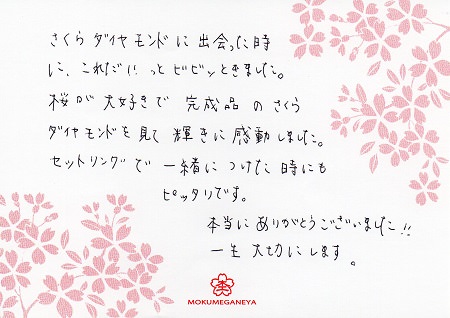 さくらダイヤモンドに出会った時
に、これだ!!っとビビッときました。
桜が大好きで完成品のさくら
ダイヤモンドを見て輝きに感動しました。
セットリングで一緒につけた時にも
ピッタリです。
本当にありがとうございました!!
一生大切にします。
MOKUMEGANEYA